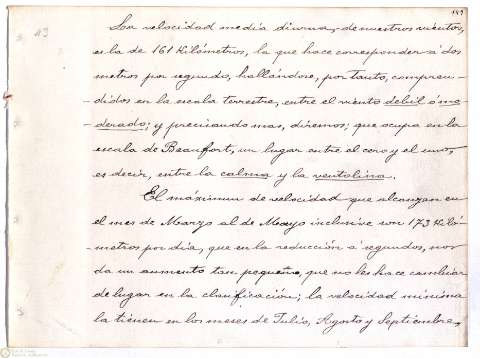 La velocidad media diurna, de nuestros vientos,
es la de 161 Kilómetros, la que hace corresponder á dos
metros por segundo, hallándose, por tanto, compren-
-didos en la escala terrestre, entre el viento debil ó mo-
derado; y precisando mas, diremos; que ocupa en la
escala de Beaufort, un lugar entre el cero y el uno,
es decir, entre la calma y la ventolina.
El máximun de velocidad que alcanzan en
el mes de Marzo al de Mayo inclusive son 173 Kiló-
metros por dia, que en la reducción á segundos, nos
da un aumento tan pequeño, que no les hace cambiar
de lugar en la clasificación; la velocidad mínima
la tienen en los meses de Julio, Agosto y Septiembre,